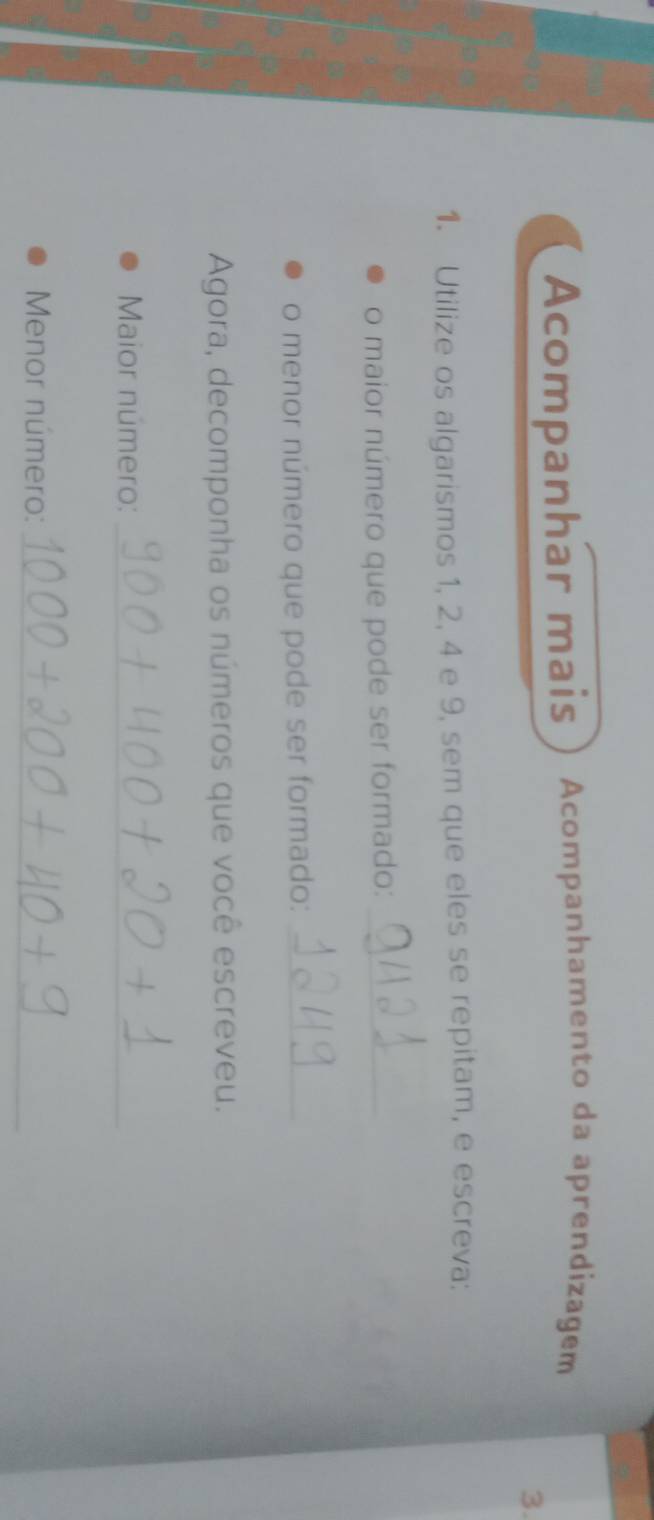 Acompanhar mais Acompanhamento da aprendizagem
1. Utilize os algarismos 1, 2, 4 e 9, sem que eles se repitam, e escreva:
• o maior número que pode ser formado: 9421
• o menor número que pode ser formado: 1249
Agora, decomponha os números que você escreveu.
• Maior número: 900 + 400 + 20 + 1
• Menor número: 1000 + 200 + 40 + 9
3.